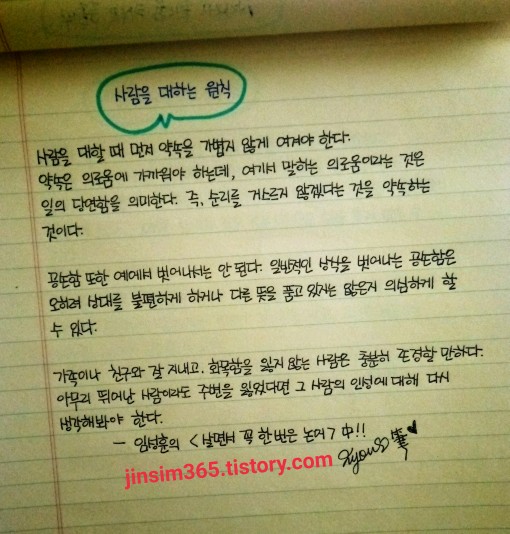 사람을 대하는 원칙
사람을 대할 때 먼저 약속을 가볍지 않게 여겨야 한다.
약속은 의로움에 가까워야 하는데, 여기서 말하는 의로움이라는 것은
일의 당연함을 의미한다. 즉, 순리를 거스르지 않겠다는 것을 약속하는
것이다.
공손함 또한 예에서 벗어나서는 안 된다. 일반적인 상식을 벗어나는 공손함은
오히려 상대를 불편하게 하거나 다른 뜻을 품고 있지는 않은지 의심하게 할
수 있다.
가족이나 친구와 잘 지내고, 화목함을 잃지 않는 사람은 충분히 존경할 만하다.
아무리 뛰어난 사람이라도 주변을 잃었다면 그 사람의 인성에 대해 다시
생각해봐야 한다.
- 임성훈의 <살면서 꼭 한번은 논어> 中!!
jinsim365.tistory.com